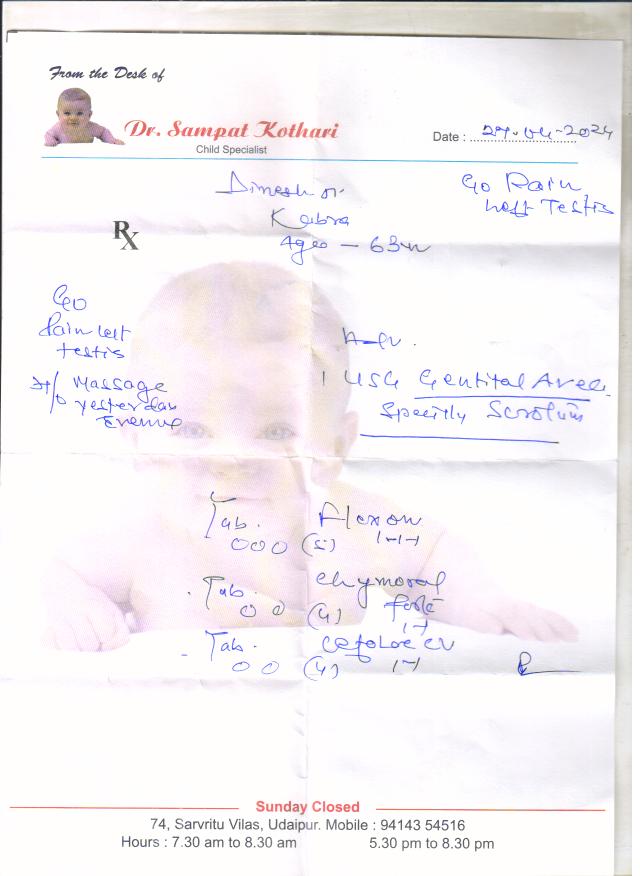 From the Desk of
Dr. Sampat Kothari
Child Specialist
Date : 27-04-2024
Dinesh
Kabra
Age - 63
C/o Pain
Left Testis
Rx
C/o
Pain left
testis
H/o Massage
yesterday
Adv.
1 USG Gentital Area
Specilly Scrotum
Tab. Flexon
000 (5) 1-1-1
Tab. Chymoral
00 (4) forte
1-1
Tab. Cefolac CV
00 (4) 1-1
Sunday Closed
74, Sarvritu Vilas, Udaipur. Mobile : 94143 54516
Hours : 7.30 am to 8.30 am 5.30 pm to 8.30 pm